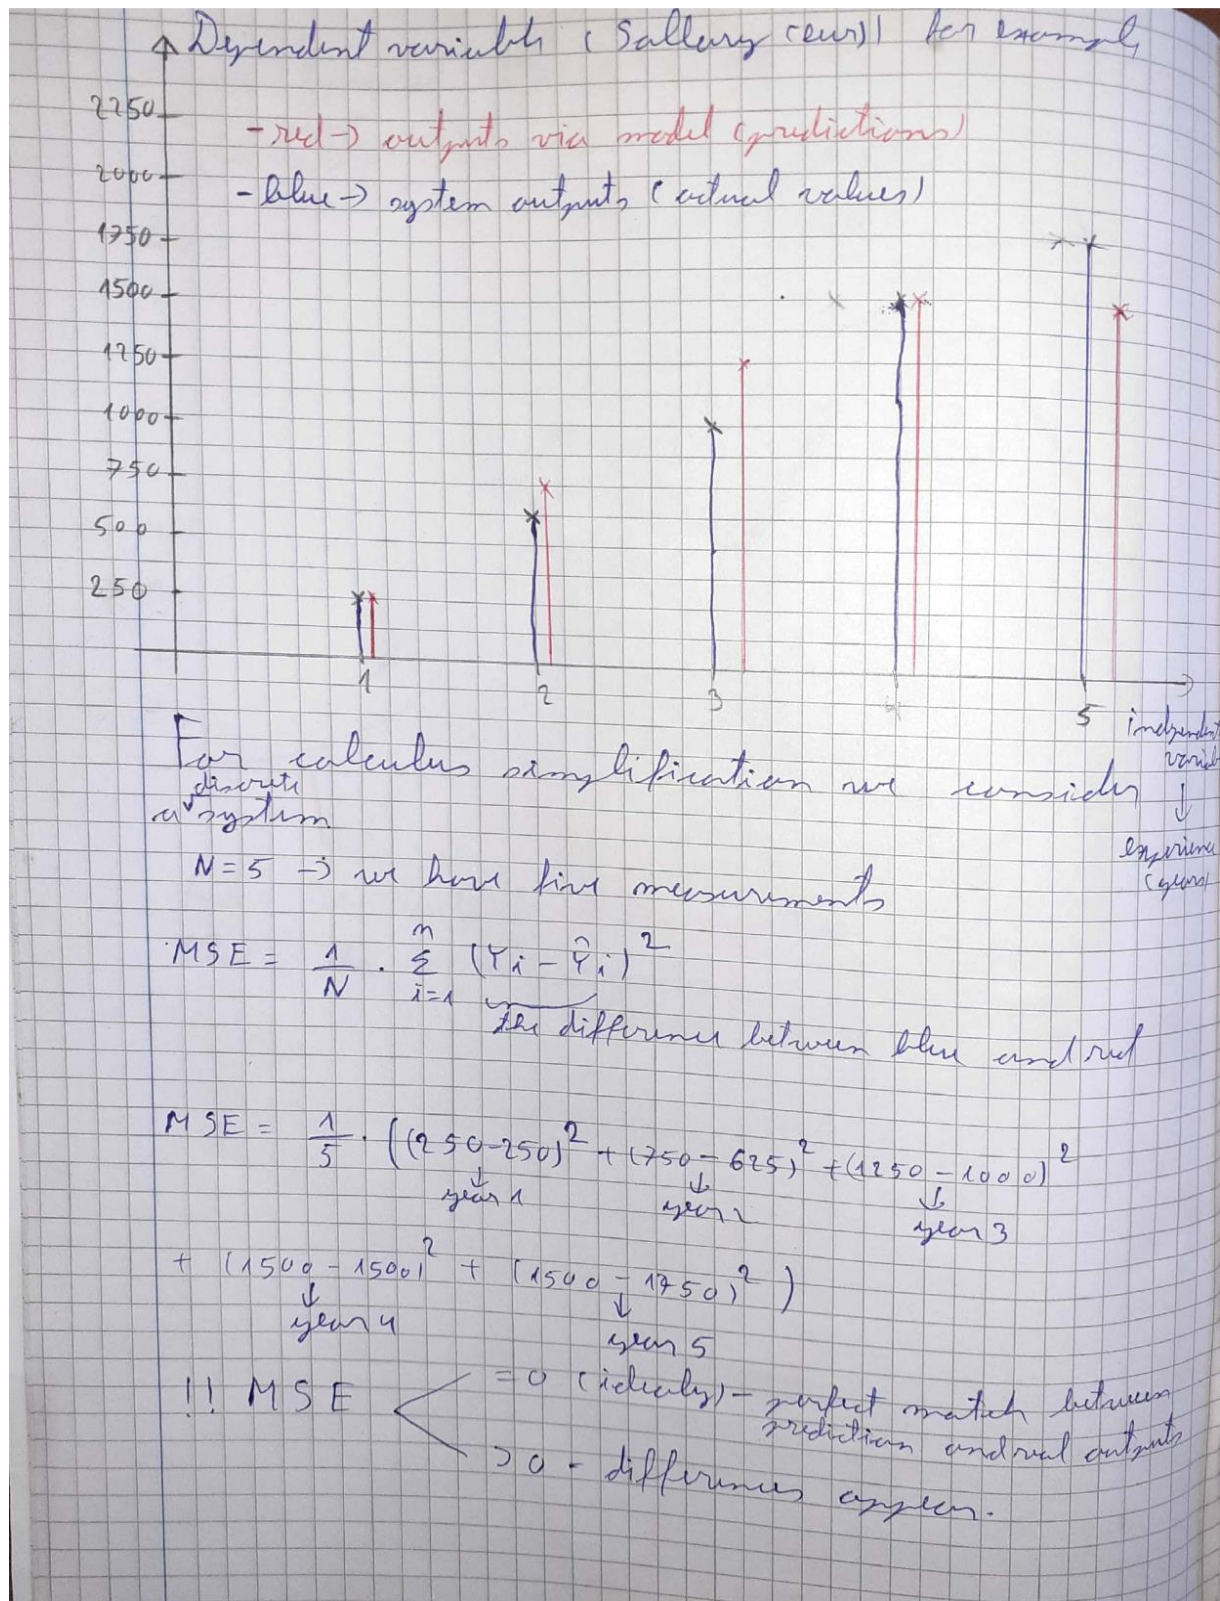 Dependent variable (Sallary (eur)) for example
2250
- red → outputs via model (predictions)
2000
- blue → system outputs (actual values)
1750
1500
1250
1000
750
500
250
1 2 3 4 5
independent
variabl
↓
experience
(years)
For calculus simplification we consider
discrete
a system
N = 5 → we have five measurements
MSE = 1/N · n Σ i=1 (Yi - Ŷi)²
the difference between blue and red
MSE = 1/5 · ((250-250)² + (750-625)² + (1250-1000)²
↓ year 1 ↓ year 2 ↓ year 3
+ (1500 - 1500)² + (1500 - 1750)² )
↓ year 4 ↓ year 5
!! MSE
= 0 (idealy) - perfect match between
prediction and real outputs
> 0 - differences appear.